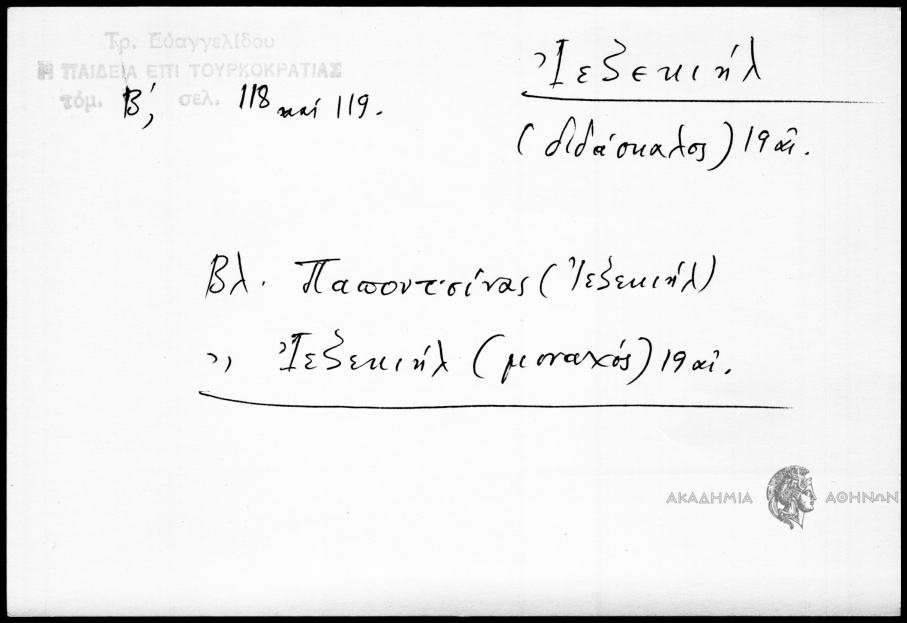 Τρ. Εὐαγγελίδου
Η ΠΑΙΔΕΙΑ ΕΠΙ ΤΟΥΡΚΟΚΡΑΤΙΑΣ
τόμ. Β', σελ. 118 καί 119.
Ἰεζεκιήλ
(διδάσκαλος) 19 αἰ.
Βλ. Παπουτσίνας (Ἰεζεκιήλ)
,, Ἰεζεκιήλ (μοναχός) 19 αἰ.
ΑΚΑΔΗΜΙΑ ΑΘΗΝΩΝ